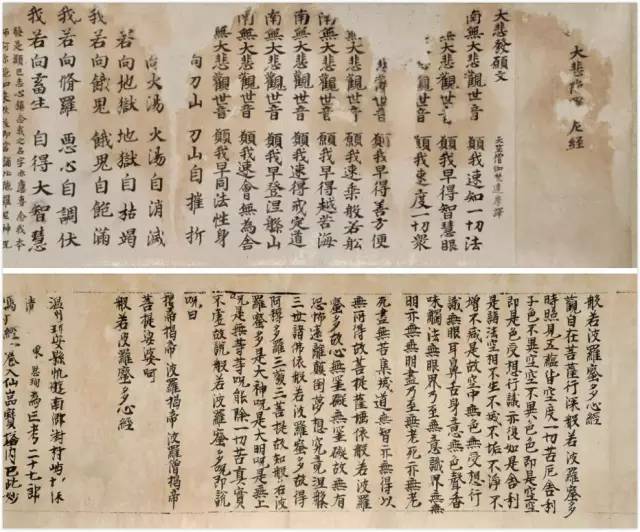 大悲 尼經
天竺僧伽梵達摩譯
大悲發願文
南無大悲觀世音 願我速知一切法
南無大悲觀世音 願我早得智慧眼
大悲觀世音 願我速度一切衆
悲觀世音 願我早得善方便
無大悲觀世音 願我速乘般若船
南無大悲觀世音 願我早得越苦海
南無大悲觀世音 願我速得戒定道
南無大悲觀世音 願我早登涅槃山
南無大悲觀世音 願我速會無為舍
無大悲觀世音 願我早同法性身
向刀山 刀山自摧折
向火湯 火湯自消滅
若向地獄 地獄自枯竭
我若向餓鬼 餓鬼自飽滿
我若向脩羅 惡心自調伏
我若向畜生 自得大智慧
發是願已志心稱念我之名字亦應專念我本
般若波羅蜜多心經
觀自在菩薩行深般若波羅蜜多
時照見五蘊皆空度一切苦厄舍利
子色不異空空不異色色即是空空
即是色受想行識亦復如是舍利
子是諸法空相不生不滅不垢不淨不
增不減是故空中無色無受想行
識無眼耳鼻舌身意無色聲香
味觸法無眼界乃至無意識界無無
明亦無無明盡乃至無老死亦無老
死盡無苦集滅道無智亦無得以
無所得故菩提薩埵依般若波羅
蜜多故心無罣礙無罣礙故無有
恐怖遠離顛倒夢想究竟涅槃
三世諸佛依般若波羅蜜多故得
阿耨多羅三藐三菩提故知般若波
羅蜜多是大神呪是大明呪是無上
呪是無等等呪能除一切苦真實
不虛故說般若波羅蜜多呪即說
呪曰
揭帝揭帝 波羅揭帝 波羅僧揭帝
菩提娑婆呵
般若波羅蜜多心經